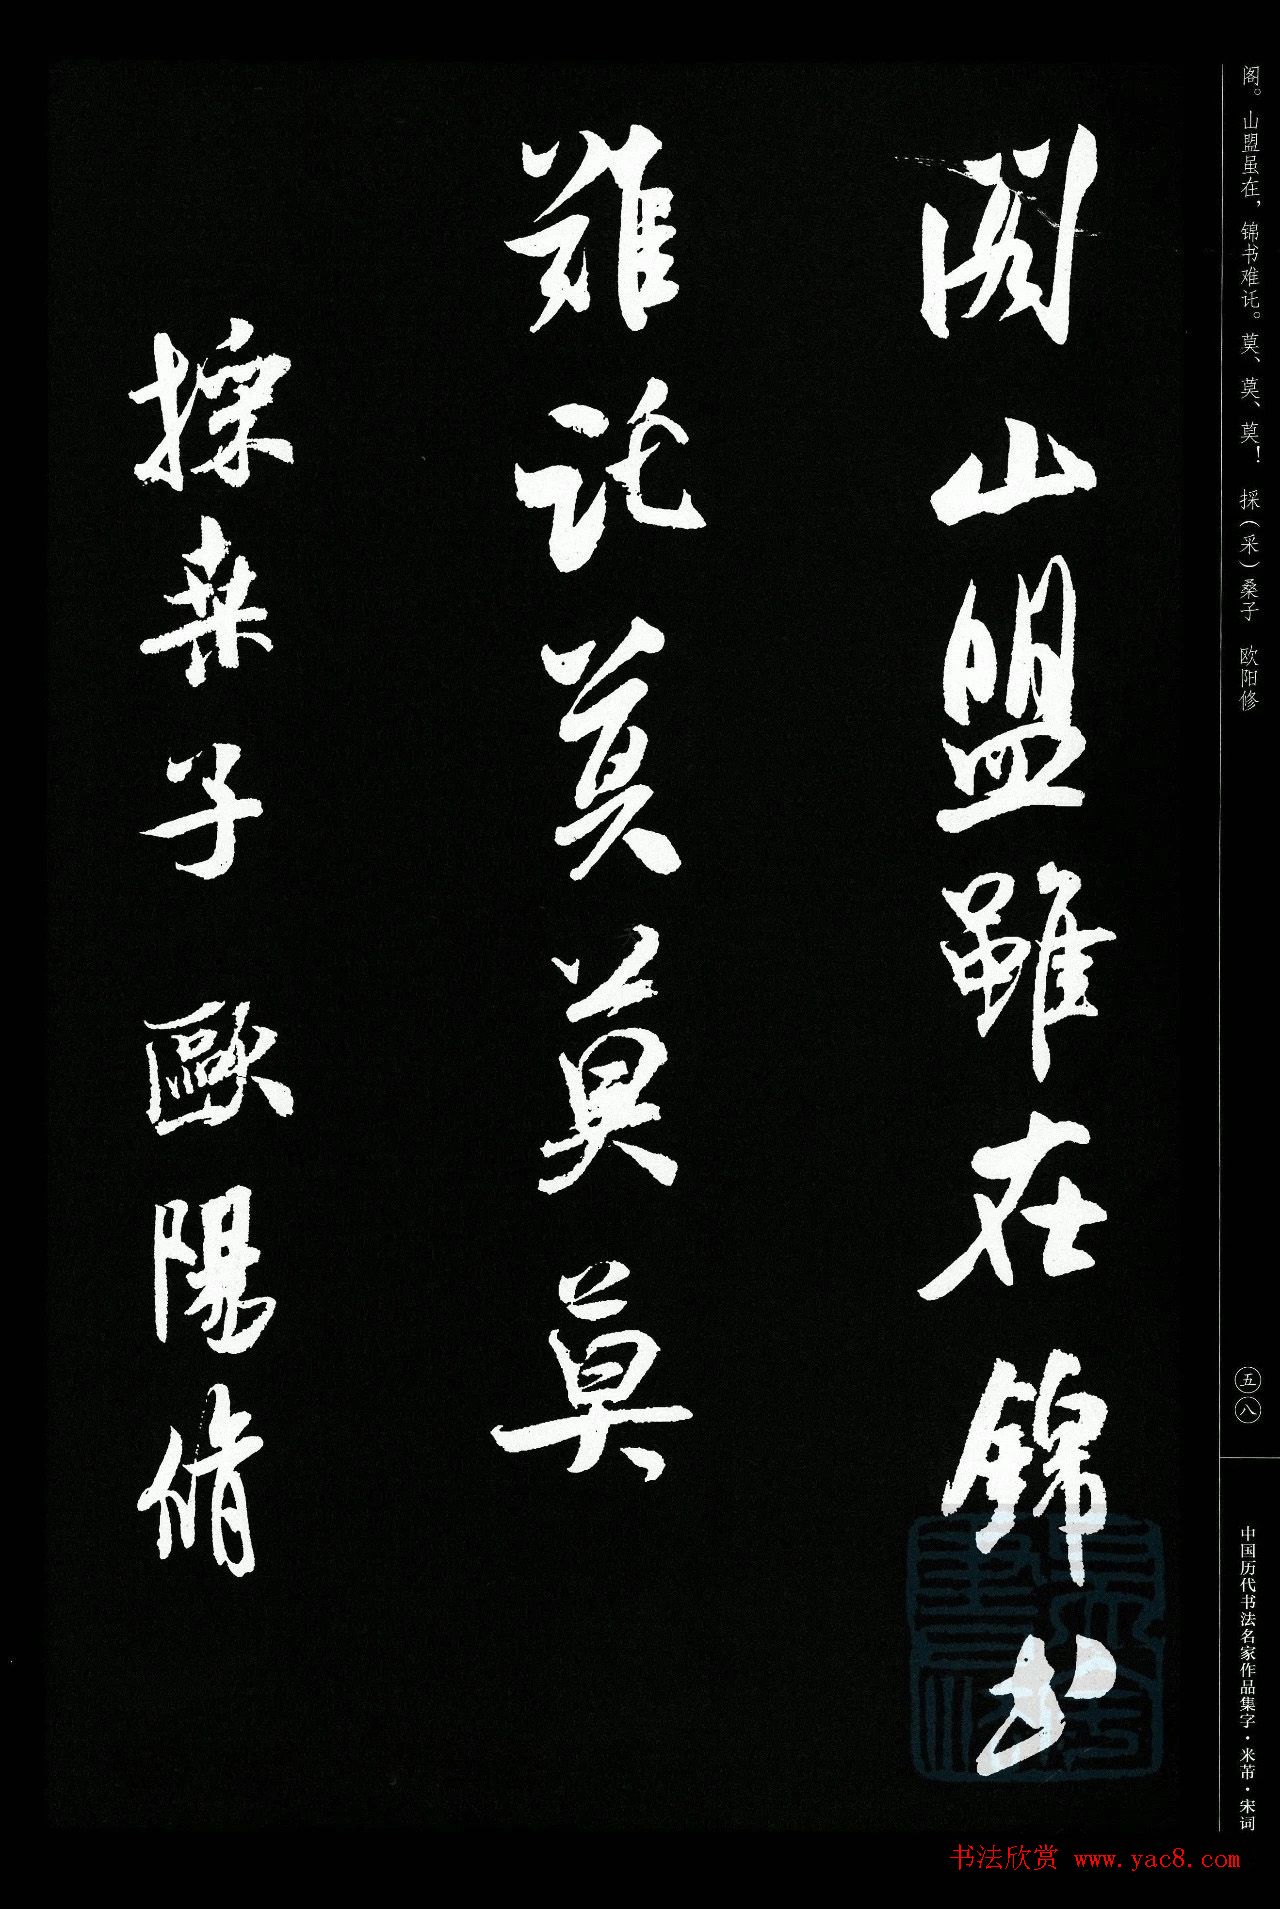 阁。山盟虽在，锦书难讬。莫、莫、莫！ 採（采）桑子 欧阳修
閣山盟雖在錦书
難託莫莫莫
採桒子 歐陽脩
五八
中国历代书法名家作品集字·米芾·宋词
书法欣赏 www.yac8.com